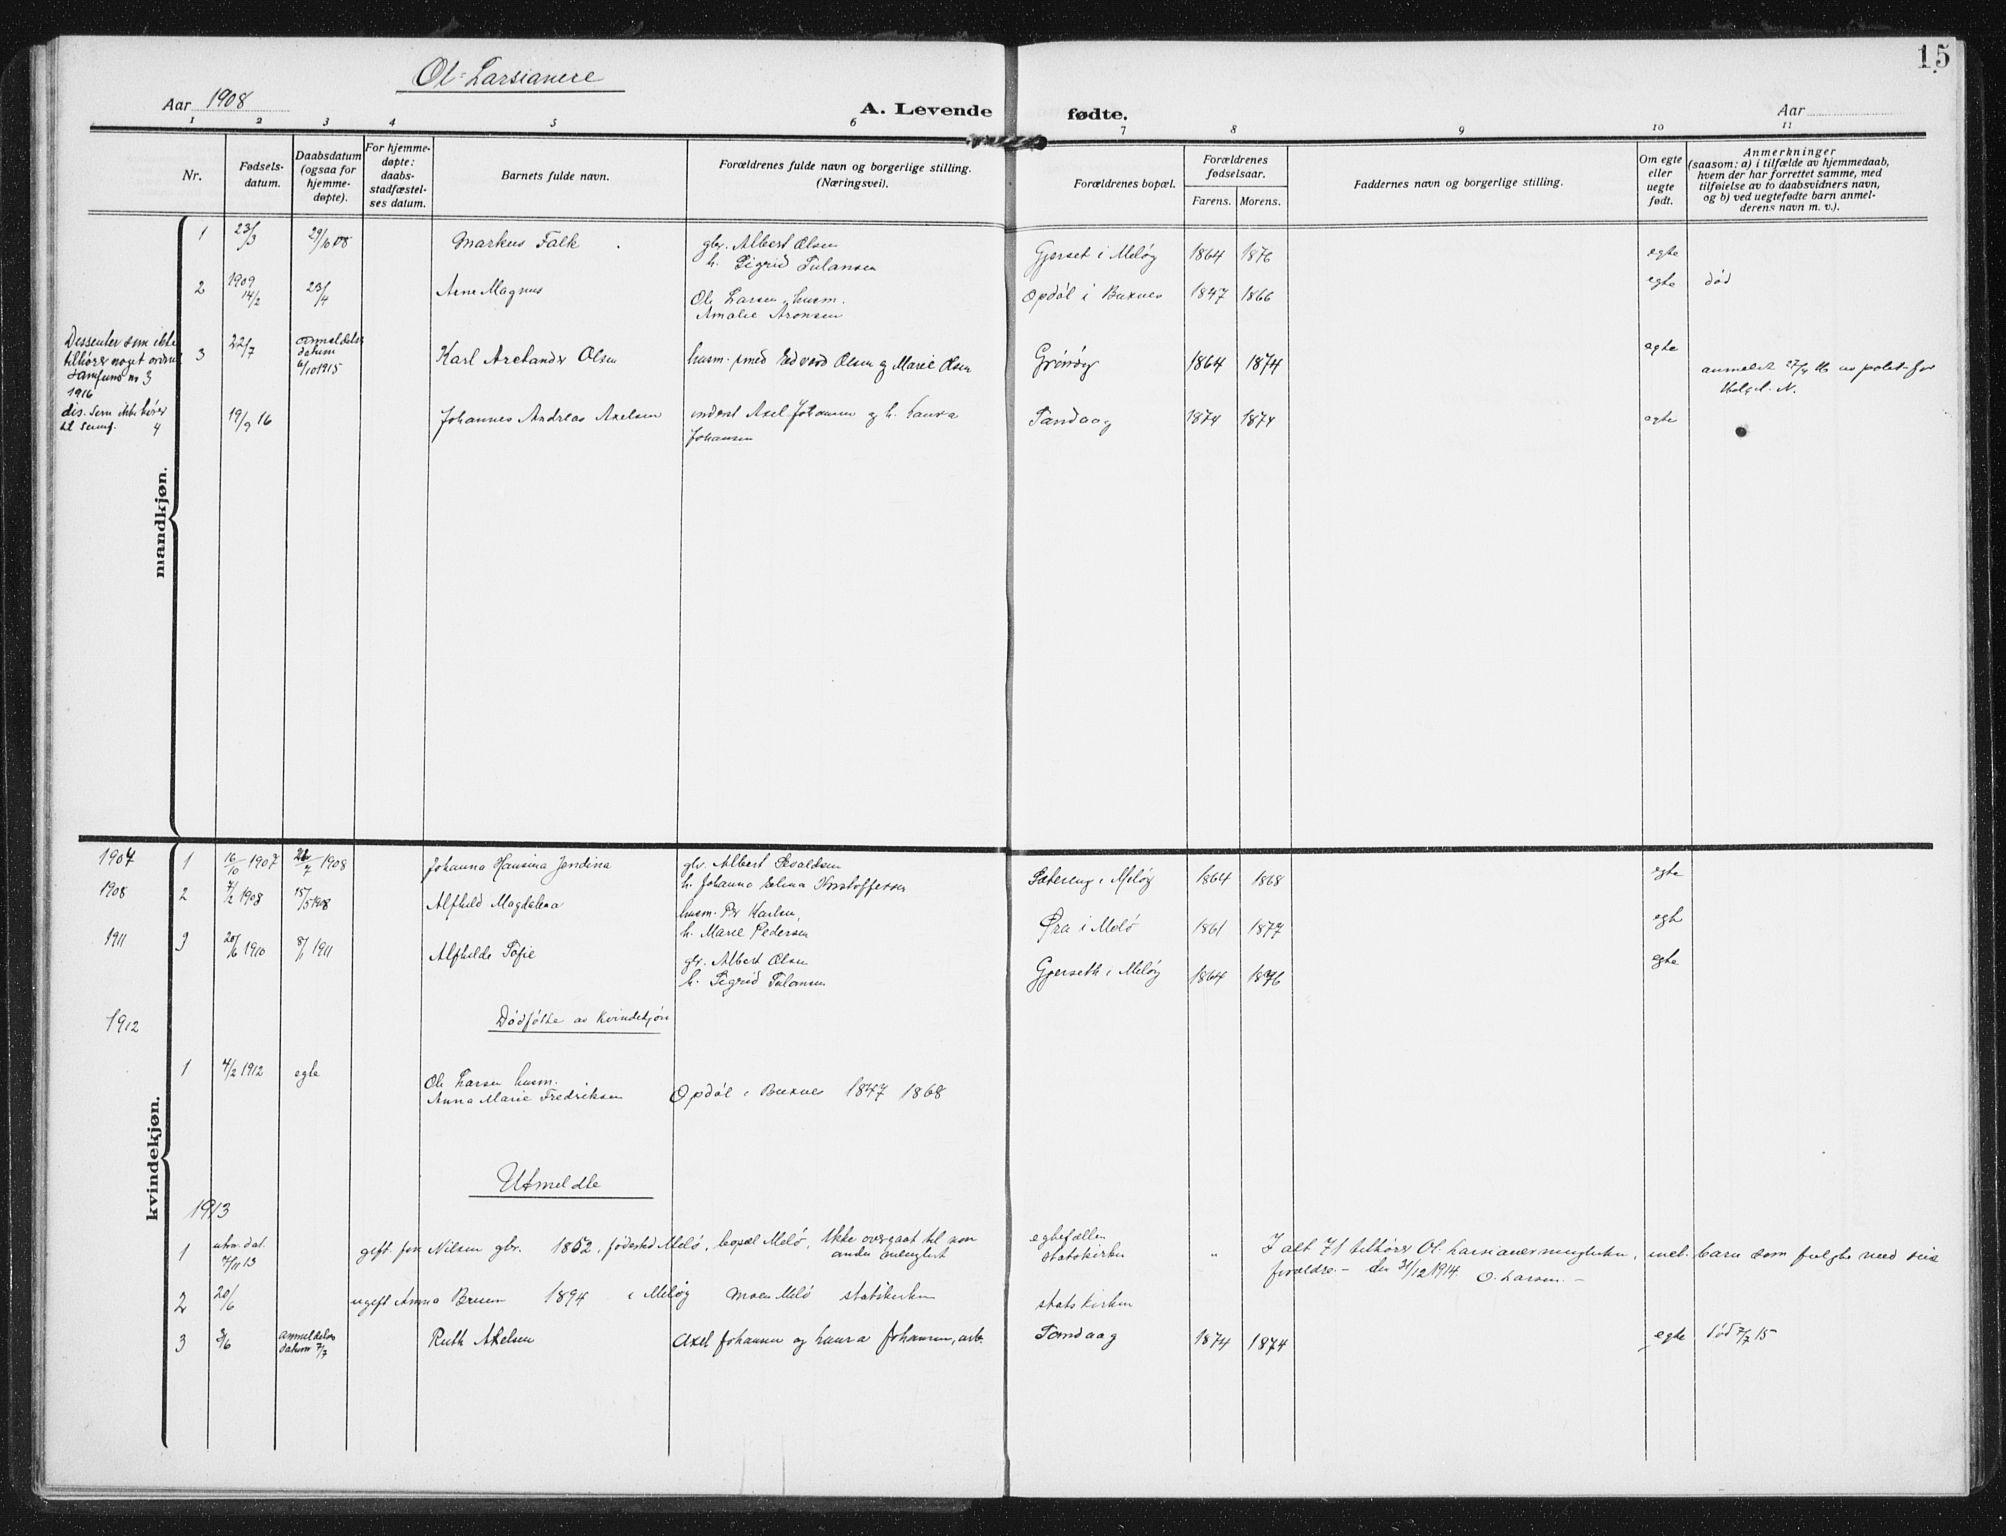 15
Ol-Larsianere
Aar 1908
A. Levende fødte.
Aar
1 2 3 4 5 6 7 8 9 10 11
Nr.
Fødsels-
datum.
Daabsdatum
(ogsaa for
hjemme-
døpte).
For hjemme-
døpte:
daabs-
stadfæstel-
ses datum.
Barnets fulde navn.
Forældrenes fulde navn og borgerlige stilling.
(Næringsvei).
Forældrenes bopæl.
Forældrenes
fødselsaar.
Farens. Morens.
Faddernes navn og borgerlige stilling.
Om egte
eller
uegte
født.
Anmerkninger
(saasom: a) i tilfælde av hjemmedaab,
hvem der har forrettet samme, med
tilføielse av to daabsvidners navn,
og b) ved uegtefødte barn anmel-
derens navn m. v.).
mandkjøn.
1 23/3 29/6 08 Markus Falk gbr. Albert Olsen Gjerset i Meløy 1864 1876 egte
h. Sigrid Tulansen
2 1909 14/2 23/4 Arne Magnus Ole Larsen husm. Opdøl i Buxnes 1847 1866 egte død
Amalie Aronsen
Dissenter som ikke
tilhører noget ordnet
samfund nr 3
3 22/7 anmeldelses
datum
6/10 1915
Karl Archander Olsen husm. smed Edvard Olsen og Marie Olsen Grønøy 1864 1874 egte
anmeldt 27/4 16 av
Helgel. N.
1916
dis. som ikke hører
til samf. 4
19/9 16 Johannes Andreas Axelsen inderst Axel Johansen og h. Laura Tandaag 1874 1874 egte
Johansen
kvindekjøn.
1907 1 16/10 1907 26/7 1908 Johanna Hansina Jendina gbr. Albert Sivaldsen
h. Johanna Elina Kristoffersen Sætereng i Meløy 1864 1868 egte
1908 2 7/2 1908 15/5 1908 Alfhild Magdalena husm. Per Karlsen,
h. Marie Pedersen Øra i Melø 1861 1877 egte
1911 3 20/6 1910 8/1 1911 Alfhilde Sofie gbr. Albert Olsen
h. Sigrid Tulansen Gjerseth i Meløy 1864 1876 egte
1912 Dødfødte av Kvindekjøn
1 4/2 1912 egte Ole Larsen husm.
Anna Marie Fredriksen Opdøl i Buxnes 1847 1868
Utmeldte
1913
1 utm. dat. 7/11 13 gift. Nilsen gbr. 1852, fødested Melø, bopæl Melø, Ikke overgaat til noe
andre menighet
egtefællen
statskirken
"
I alt 71 tilhører Ol. Larsianermenigheten, inel. barn som fulgte med sine
forældre. – den 31/12 1914. O. Larsen. –
2 20/6 ugift Anna Bresen 1894 i Meløy Moen Melø statskirken statskirken
3 3/6 anmeldelses
datum 7/7 Ruth Axelsen Axel Johansen og Laura Johansen, arb. Tandaag 1874 1874 egte død 7/7 15